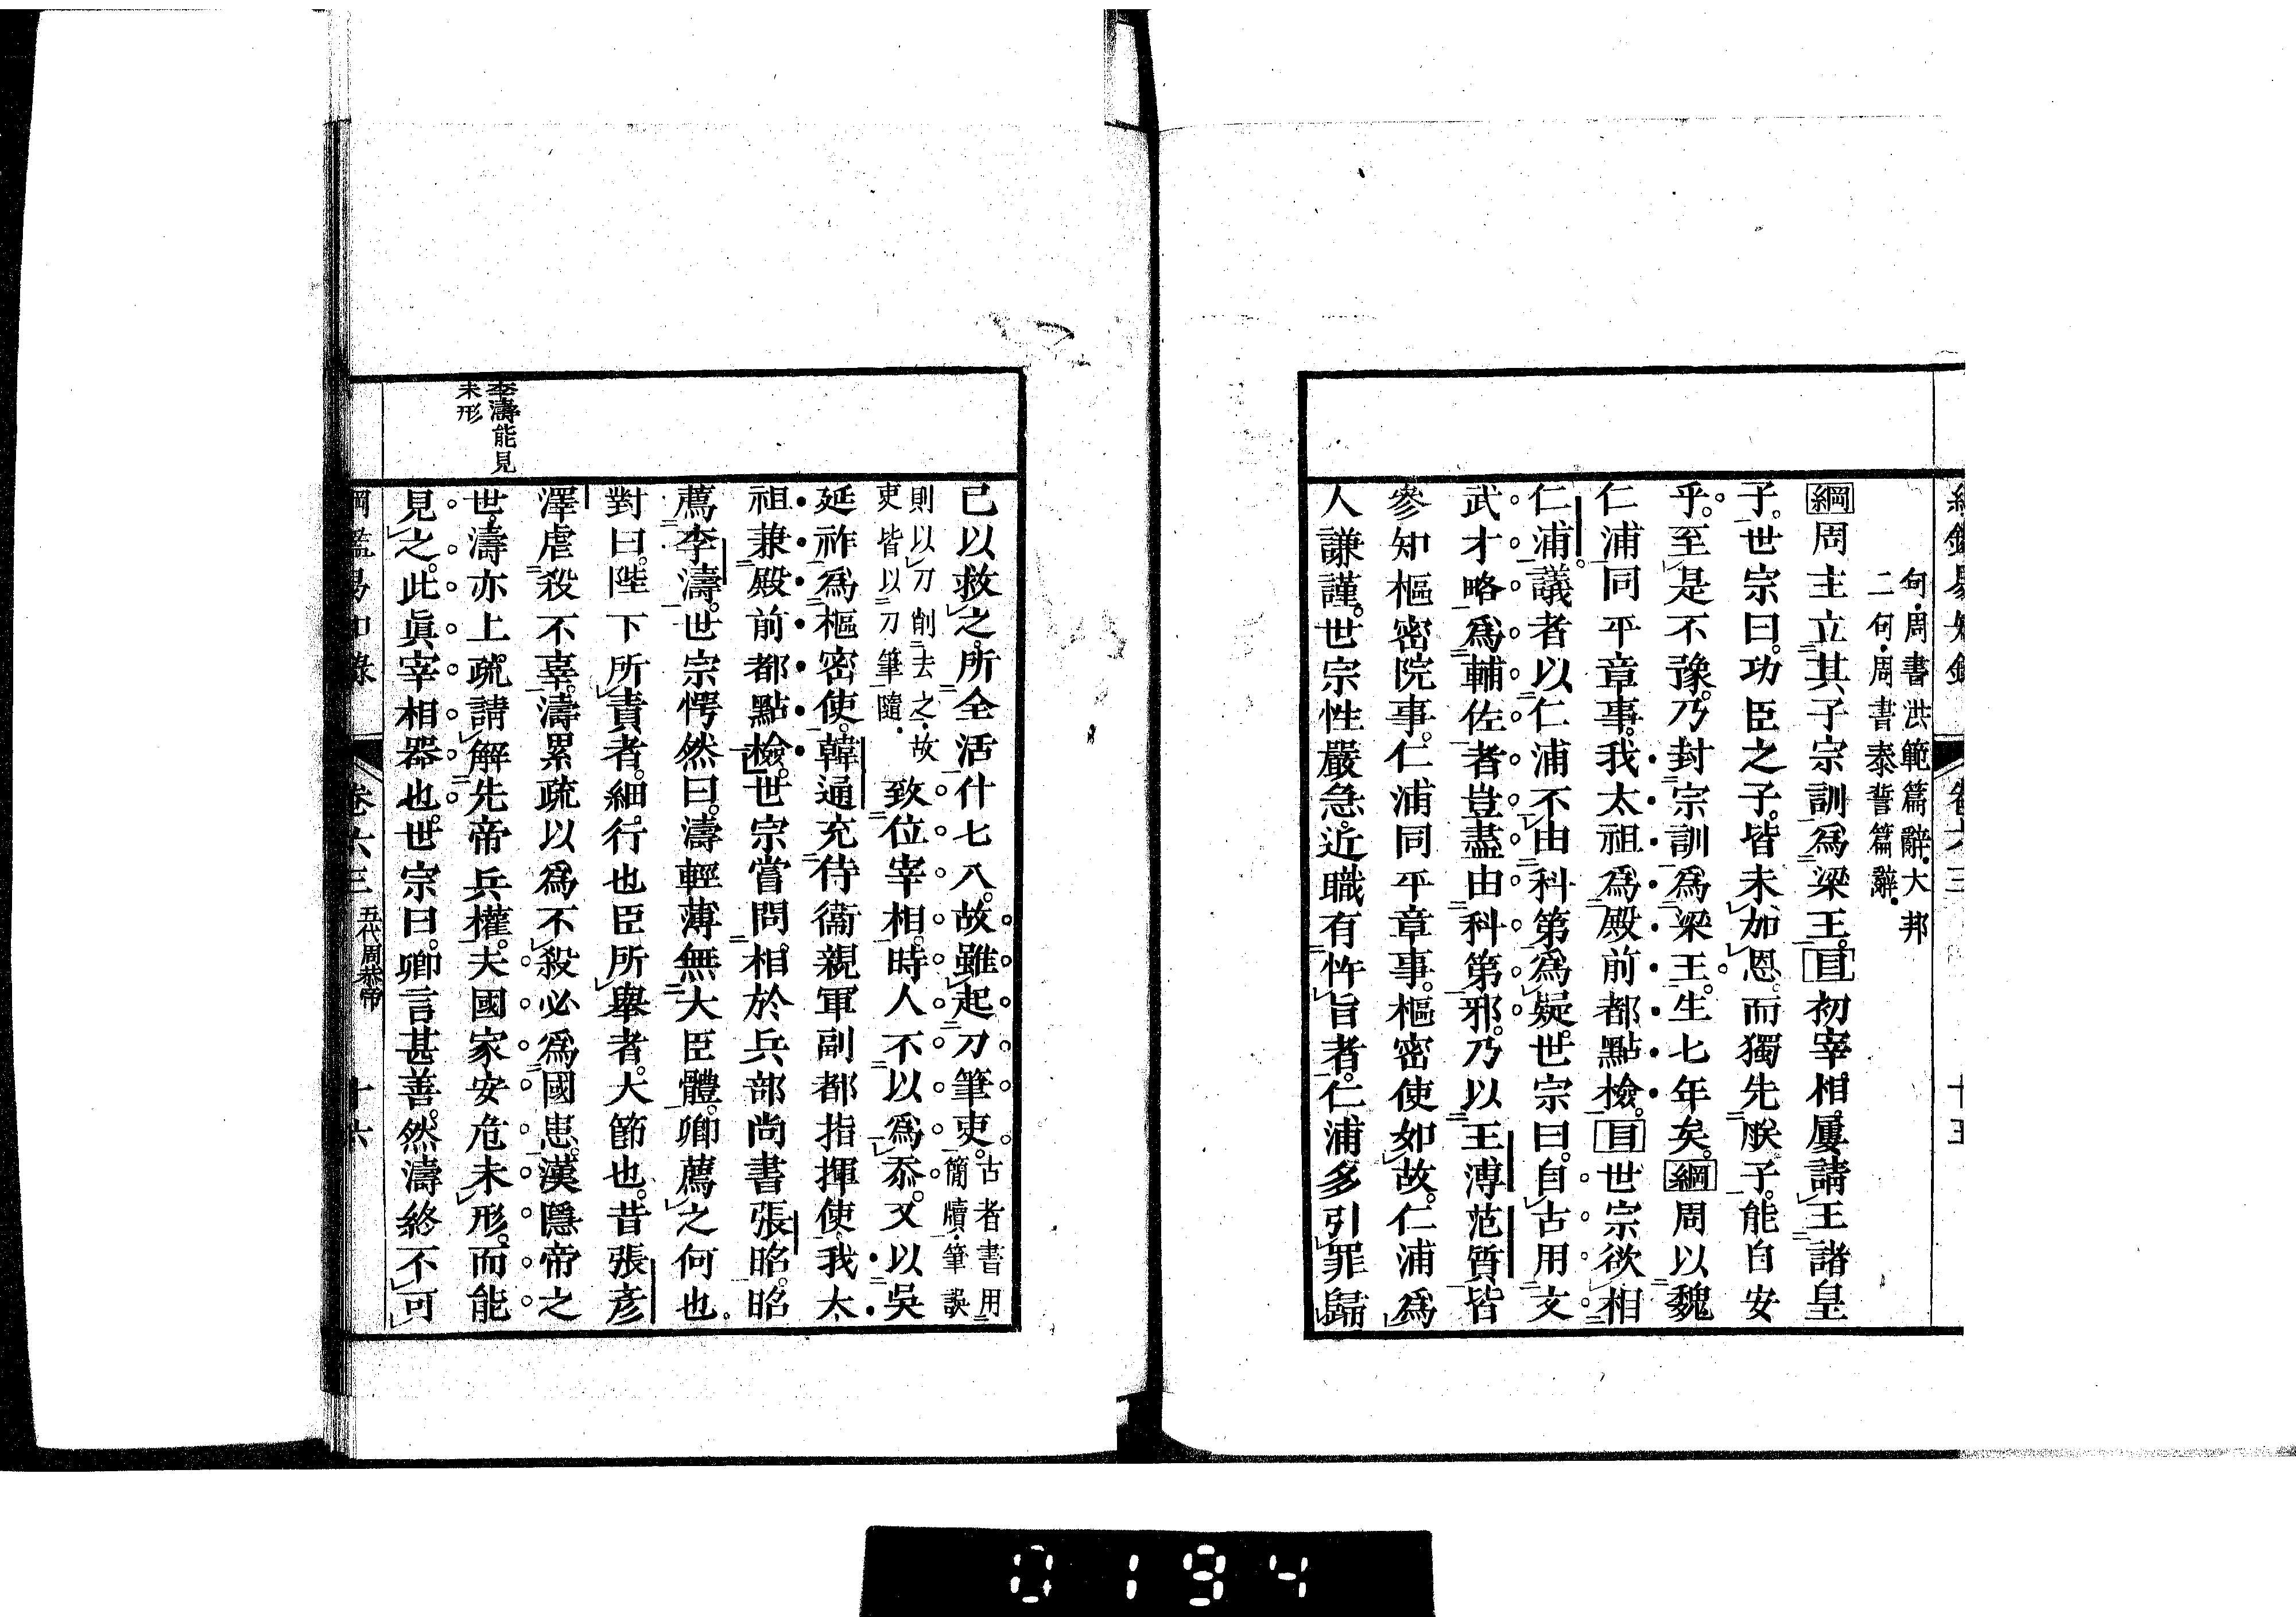 綱鑑易知錄 卷六三 十五
句周書洪範篇辭大邦
二句周書泰誓篇辭
綱周主立其子宗訓爲梁王目初宰相屢請王諸皇
子世宗曰功臣之子皆未加恩而獨先朕子能自安
乎至是不豫乃封宗訓爲梁王生七年矣綱周以魏
仁浦同平章事我太祖爲殿前都點檢目世宗欲相
仁浦議者以仁浦不由科第爲疑世宗曰自古用文
武才略爲輔佐者豈盡由科第邪乃以王溥范質皆
參知樞密院事仁浦同平章事樞密使如故仁浦爲
人謙謹世宗性嚴急近職有忤旨者仁浦多引罪歸
已以救之所全活什七八故雖起刀筆吏古者書用簡牘筆誤
則以刀削去之故吏皆以刀筆隨致位宰相時人不以爲忝又以吳
延祚爲樞密使韓通充侍衞親軍副都指揮使我太
祖兼殿前都點檢世宗嘗問相於兵部尚書張昭昭
薦李濤世宗愕然曰濤輕薄無大臣體卿薦之何也
對曰陛下所責者細行也臣所舉者大節也昔張彥
澤虐殺不辜濤累疏以爲不殺必爲國患漢隱帝之
李濤能見
未形
世濤亦上疏請解先帝兵權夫國家安危未形而能
見之此眞宰相器也世宗曰卿言甚善然濤終不可
綱鑑易知錄 卷六三 五代周恭帝 十六
0194